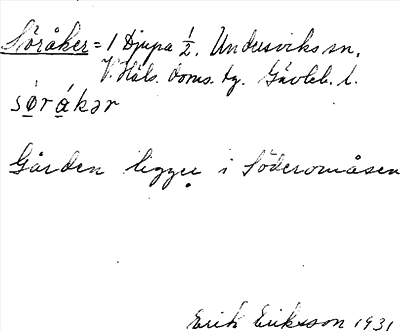 Söråker = 1 Djupa 1/2. Undersviks sn.
V. Häls. doms. tg. Gävleb. l.
sørákər
Gården ligger i Söderomåsen
Erik Eriksson 1931